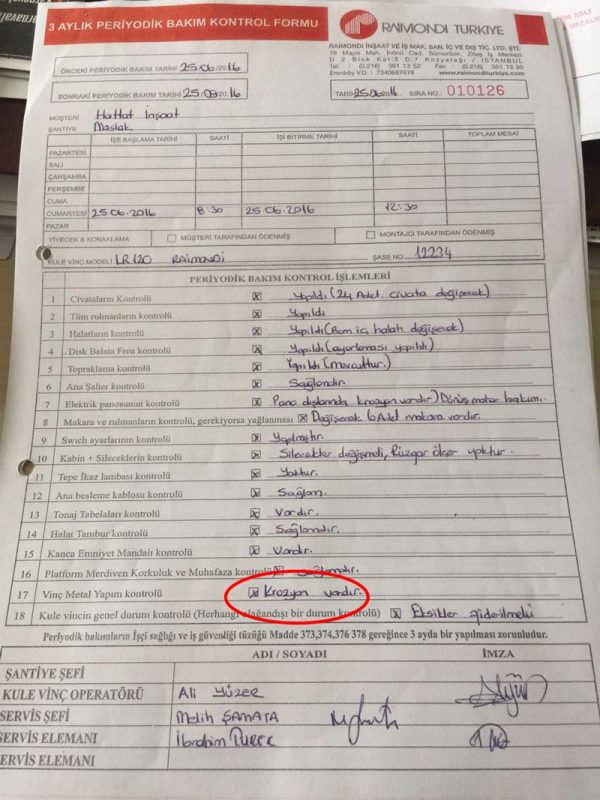 3 AYLIK PERİYODİK BAKIM KONTROL FORMU
RAIMONDI TURKIYE
RAIMONDI İNŞAAT VE İŞ MAK. SAN. İÇ VE DIŞ TİC. LTD. ŞTİ.
19 Mayıs Mah. İnönü Cad. Sümerkok. Zitaş İş Merkezi
D.2 Blok Kat:3 D:7 Kozyatağı / İSTANBUL
Tel. : (0.216) 361 13 52 Fax : (0.216) 361 13 95
Erenköy V.D. : 7340667678 www.raimonditurkiye.com
ÖNCEKİ PERİYODİK BAKIM TARİHİ 25.06/2016
SONRAKİ PERİYODİK BAKIM TARİHİ 25.09/2016
TARİH 25.06.2016 SIRA NO. 010126
MÜŞTERİ Hattat İnşaat
ŞANTİYE Maslak
İŞE BAŞLAMA TARİHİ SAATİ İŞİ BİTİRME TARİHİ SAATİ TOPLAM MESAİ
PAZARTESİ
SALI
ÇARŞAMBA
PERŞEMBE
CUMA
CUMARTESİ 25.06.2016 8:30 25.06.2016 12:30
PAZAR
YİYECEK & KONAKLAMA MÜŞTERİ TARAFINDAN ÖDENMİŞ MONTAJCI TARAFINDAN ÖDENMİŞ
KULE VİNÇ MODELİ LR120 RAIMONDI ŞASE NO 12234
PERİYODİK BAKIM KONTROL İŞLEMLERİ
1 Civataların Kontrolü Yapıldı (24 Adet civata değişecek)
2 Tüm rulmanların kontrolü Yapıldı
3 Halatların kontrolü Yapıldı (Bom iç halatı değişecek)
4 Disk Balata Fren kontrolü Yapıldı (ayarlaması yapıldı)
5 Topraklama kontrolü Yapıldı (mevcuttur.)
6 Ana Şalter kontrolü Sağlamdır.
7 Elektrik panosunun kontrolü Pano dışlarında krozyon vardır) Dönüş motor bakım.
8 Makara ve rulmanların kontrolü, gerekiyorsa yağlanması Değişecek 6 Adet makara vardır.
9 Swich ayarlarının kontrolü Yapılmıştır.
10 Kabin + Sileceklerin kontrolü Silecekler değişmeli, Rüzgar ölçer yoktur.
11 Tepe İkaz lambası kontrolü Yoktur.
12 Ana besleme kablosu kontrolü Sağlam.
13 Tonaj Tabelaları kontrolü Vardır.
14 Halat Tambur kontrolü Sağlamdır.
15 Kanca Emniyet Mandalı kontrolü Vardır.
16 Platform Merdiven Korkuluk ve Muhafaza kontrolü Sağlamdır.
17 Vinç Metal Yapım kontrolü Krozyon vardır.
18 Kule vincin genel durum kontrolü (Herhangi olağandışı bir durum kontrolü) Eksikler giderilmeli
Periyodik bakımların İşçi sağlığı ve iş güvenliği tüzüğü Madde 373,374,376 378 gereğince 3 ayda bir yapılması zorunludur.
ADI / SOYADI İMZA
ŞANTİYE ŞEFİ
KULE VİNÇ OPERATÖRÜ Ali YÜZER
SERVİS ŞEFİ Melih ŞAMATA
SERVİS ELEMANI İbrahim TÜRER
SERVİS ELEMANI